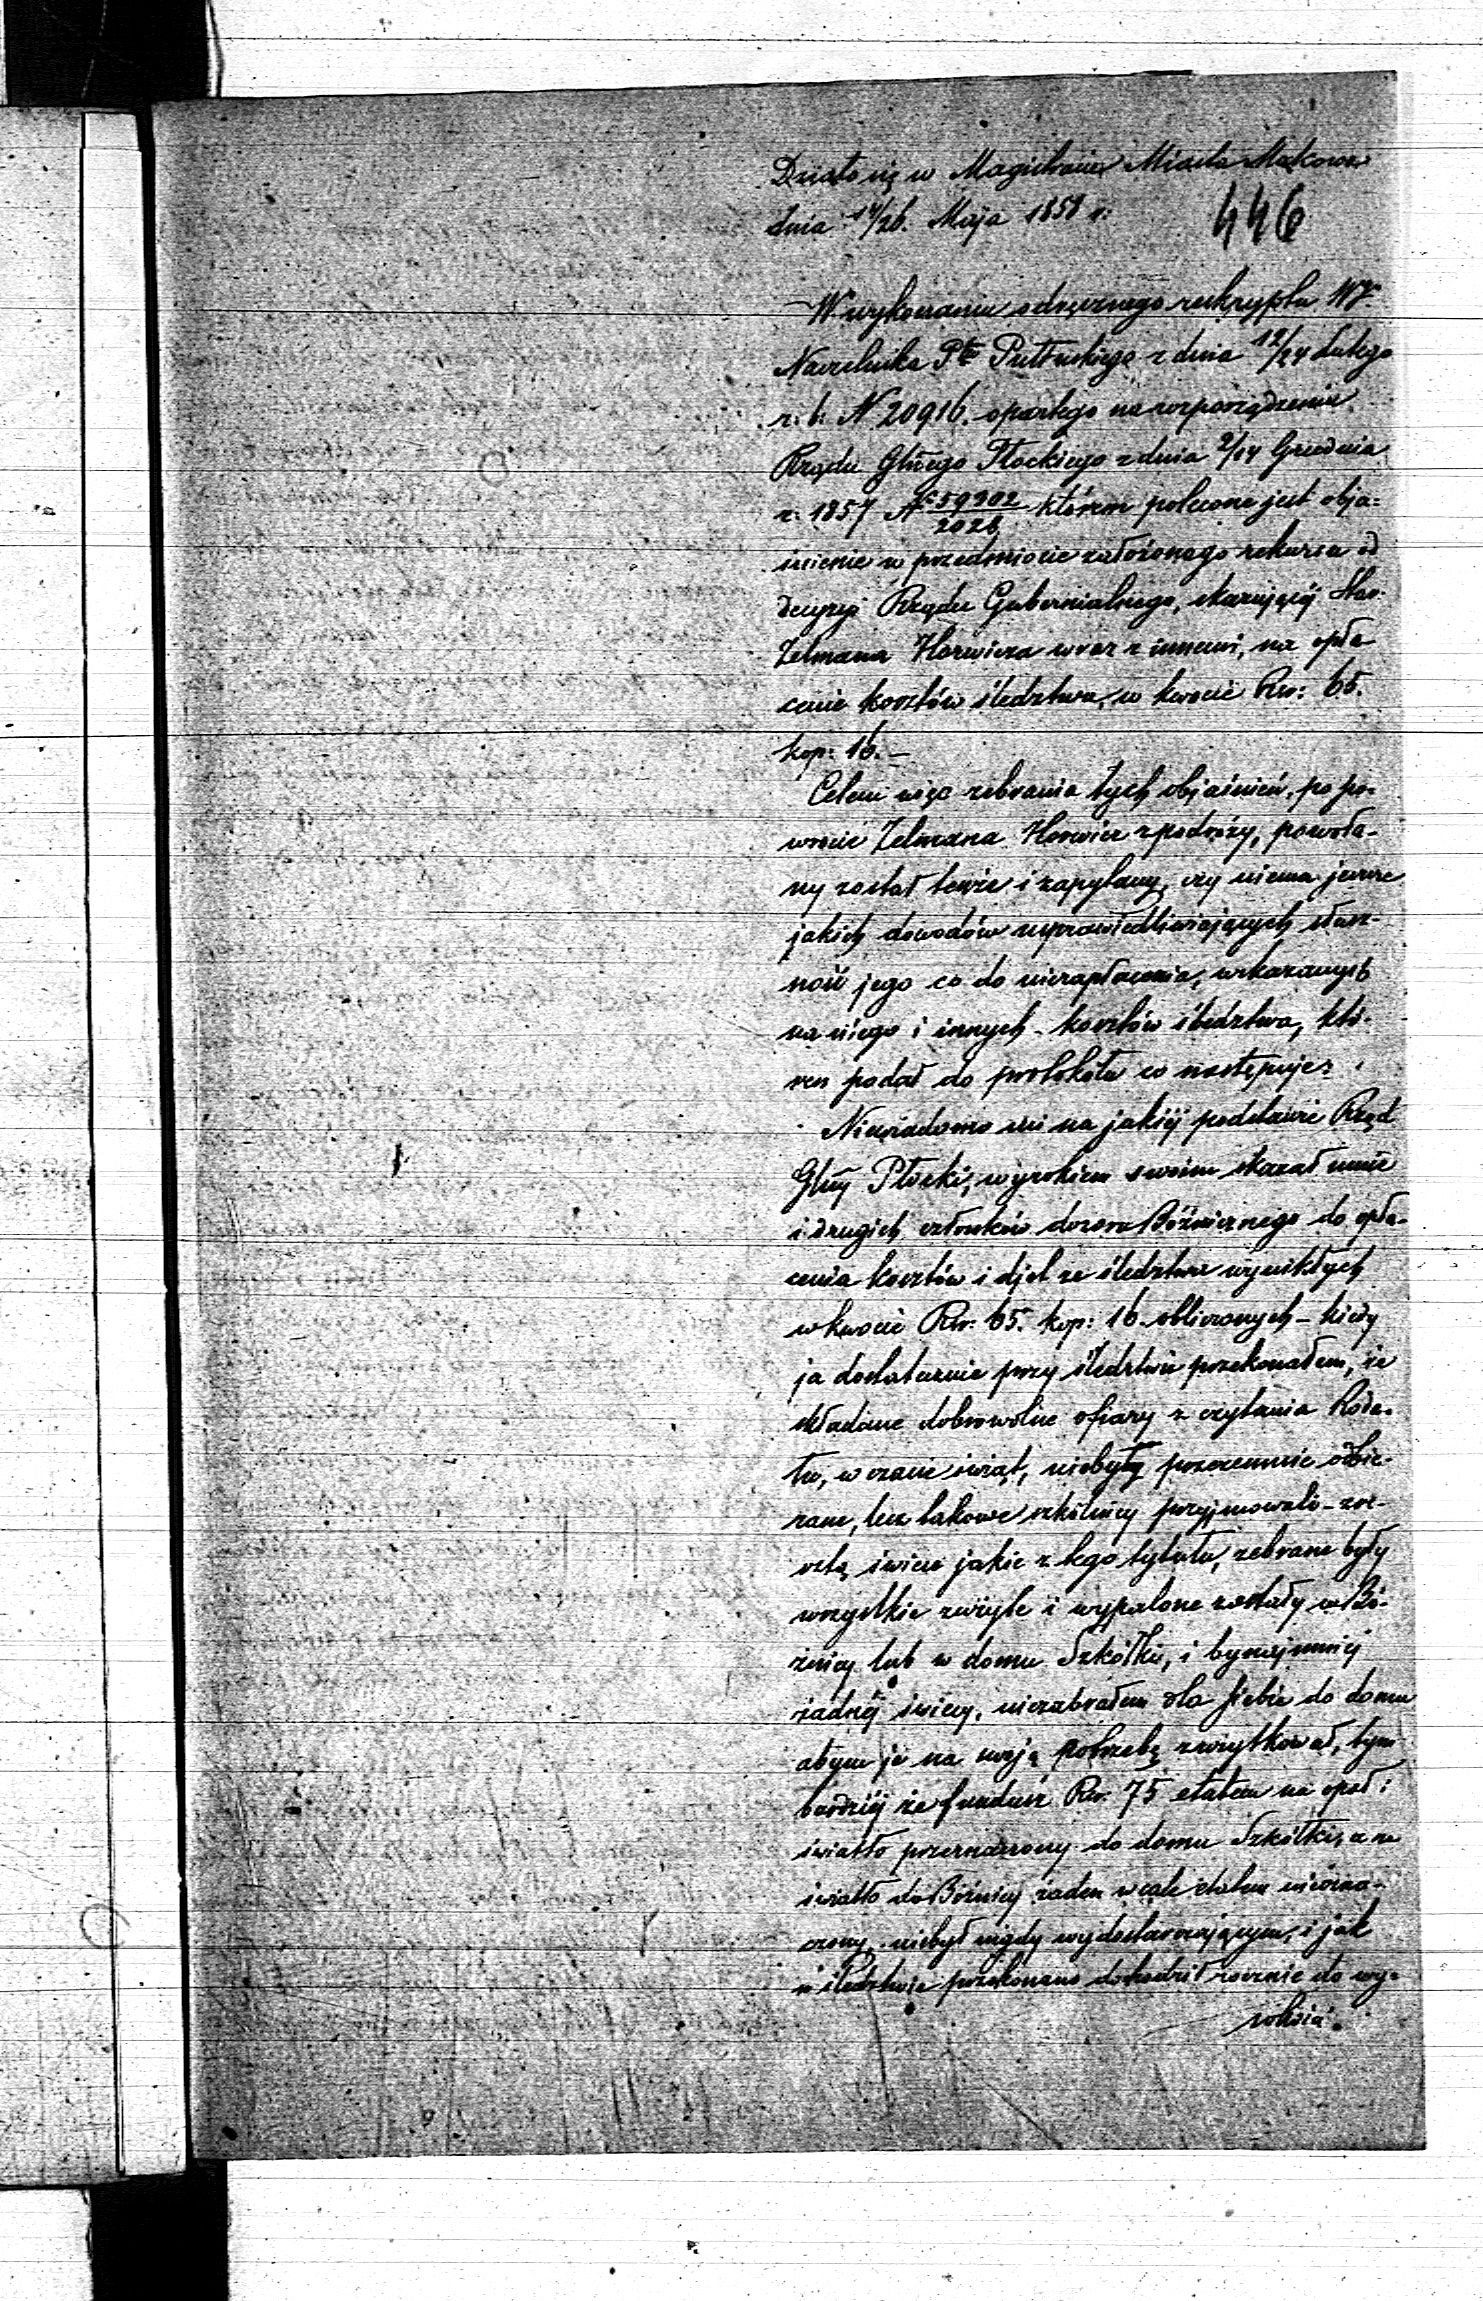 Działo się w Magistracie Miasta Makowa
dnia 14/26. Maja 1858 r:
446
W wykonaniu odręcznego reskryptu WJ
Naczelnika Ptu Pułtuskiego z dnia 12/24 Lutego
r: b: N 20916. opartego na rozporządzeniu
Rządu Glnego Płockiego z dnia 2/14 Grudnia
r: 1857 No 59902/2028 którem polecone jest obja=
śnienie w przedmiocie założonego rekursu od
decyzyi Rządu Gubernialnego, skazującéj Star:
Zelmana Horwicza wraz z innemi, na opła-
cenie kosztów śledztwa, w kwocie Rsr: 65.
kop: 16. –
Celem więc zebrania tych objaśnień, po po-
wrocie Zelmana Horwicz z podróży, powoła-
ny został tenże i zapytany, czy niema jeszcze
jakich dowodów usprawiedliwiających słusz-
ność jego co do niezapłacenia, wskazanych
na niego i innych – kosztów śledztwa, któ-
ren podał do protokółu co następuje:
Niewiadomo mi na jakiéj podstawie Rząd
Glny Płocki, wyrokiem swoim skazał mnie
i drugich członków dozoru Bóźnicznego do opła-
cenia kosztów i djet ze śledztwa wynikłych
w kwocie Rsr: 65. kop: 16. obliczonych – kiedy
ja dostatecznie przy śledztwie przekonałem, że
składane dobrowolne ofiary z czytania Roda-
łu, w czasie świąt, niebyły przezemnie odbie-
rane, lecz takowe szkólnicy przyjmowali – zre-
sztą świece jakie z tego tytułu, zebrane były
wszystkie zużyte i wypalone zostały w Bó-
żnicy lub w domu Szkółki, i bynajmniéj
żadnéj świecy, niezabrałem dla siebie do domu
abym je na moją potrzebę zużytkował, tym
bardziéj że fundusz Rsr: 75 etatem na opał i
światło przeznaczony do domu Szkółki, a na
światło do Bóźnicy żaden wcale etatem nieozna-
czony, niebył nigdy wydostarczającym, i jak
w śledztwie przekonano dochodził rocznie do wy-
sokości